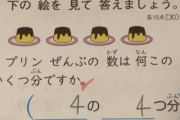 下の絵を見て答えましょう。
各15点(30)
プリンぜんぶの数は何この
いくつ分ですか。
4の 4つ分